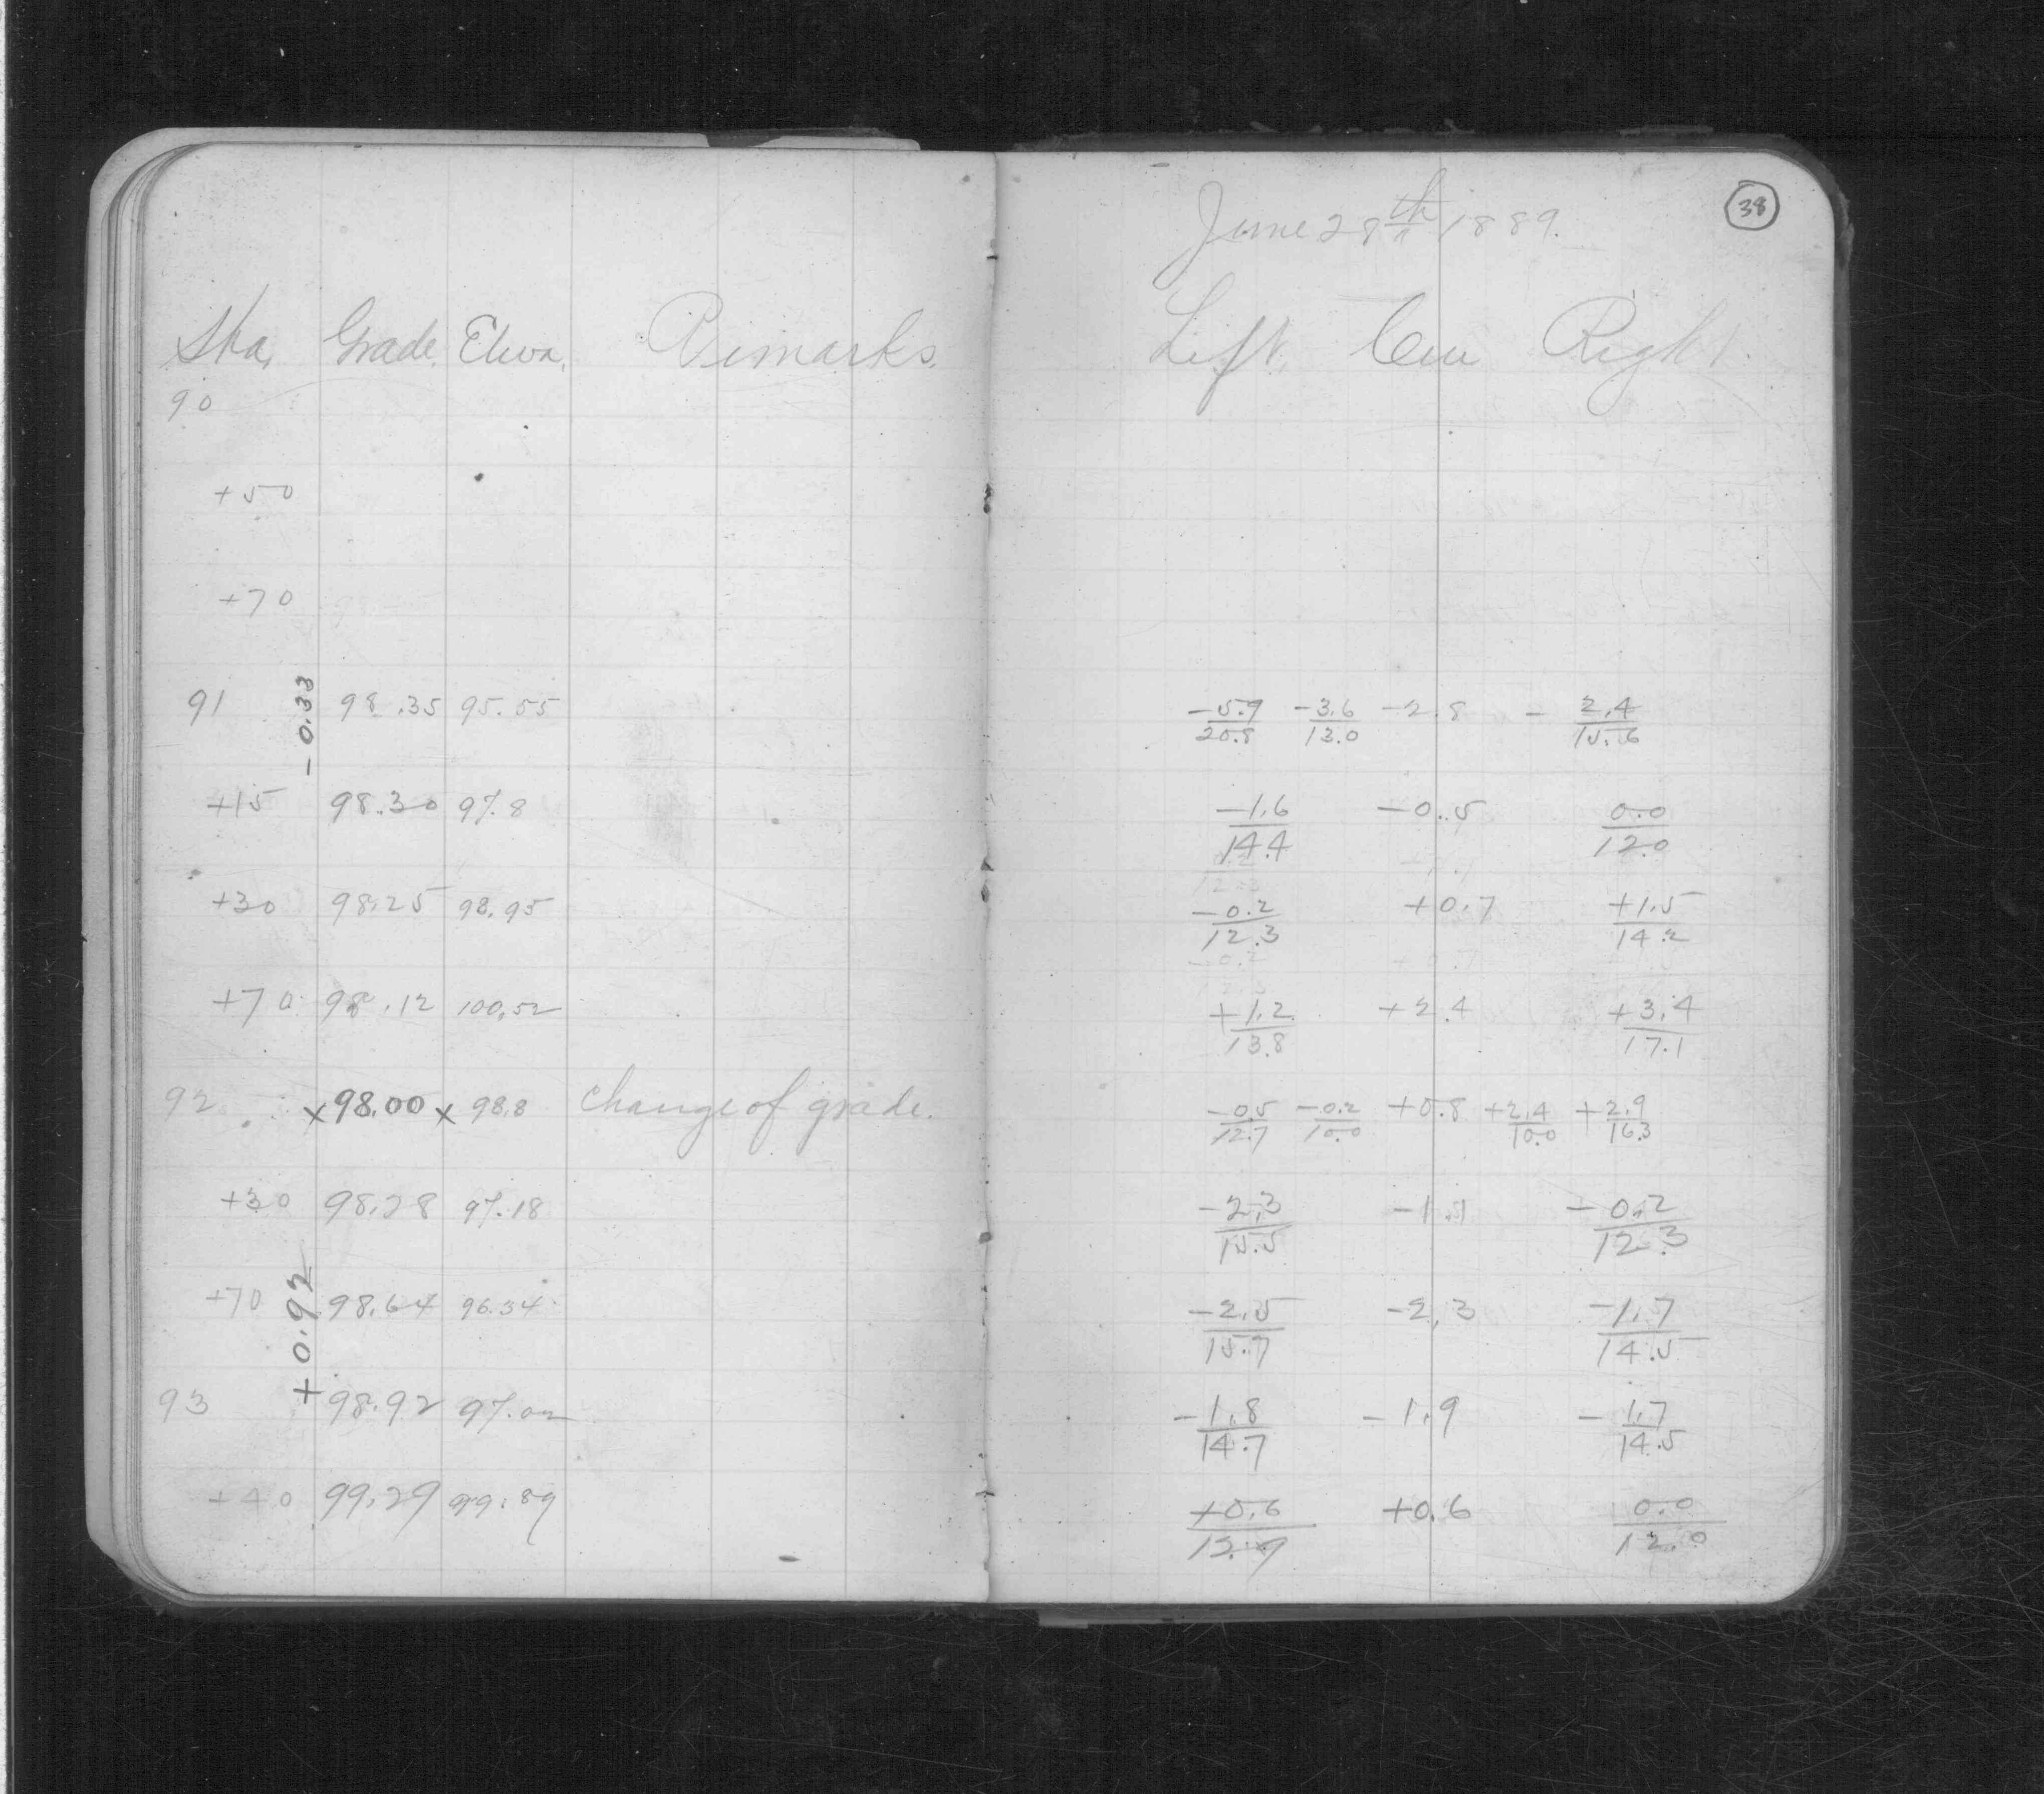 38
June 28th 1889.
Sta. Grade. Eleva. Remarks. Left. Cen Right.
90
+50
+70
91 -0.33 98.35 95.55 -5.9/20.8 -3.6/13.0 -2.8 -2.4/15.6
+15 98.30 97.8 -1.6/14.4 -0.5 0.0/12.0
+30 98.25 98.95 -0.2/12.3 +0.7 +1.5/14.2
+70 98.12 100.52 +1.2/13.8 +2.4 +3.4/17.1
92 x 98.00 x 98.8 Change of grade. -0.5/12.7 -0.2/10.0 +0.8 +2.4/10.0 +2.9/16.3
+30 98.28 97.18 -2.3/15.5 -1.1 -0.2/12.3
+70 +0.92 98.64 96.34 -2.5/15.7 -2.3 -1.7/14.5
93 98.92 97.02 -1.8/14.7 -1.9 -1.7/14.5
+40 99.29 99.89 +0.6/12.9 +0.6 0.0/12.0